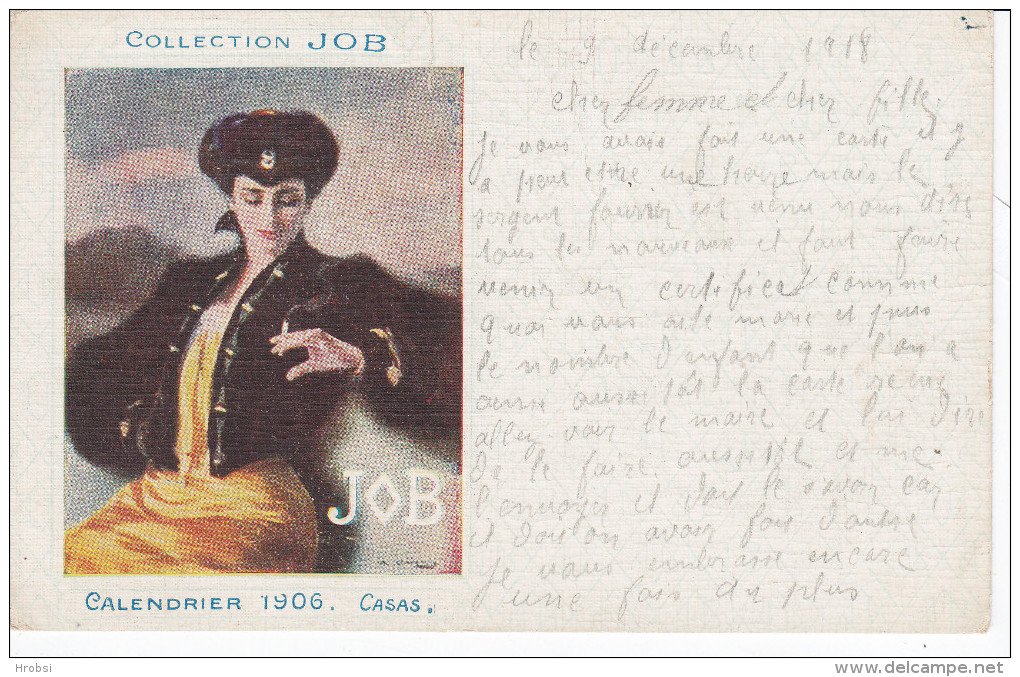 COLLECTION JOB
JOB
CALENDRIER 1906. CASAS.
le 9 décembre 1918
cher femme et cher fille
je vous avais fait une carte il y
a peut être une heure mais le
sergent fourrier est venu nous dire
tous les nouveaux il faut faire
venir un certificat comme
quoi vous aite marie et puis
le nombre d'enfant que l'on a
aussi aussitôt la carte reçue
allez voir le maire et lui dire
de le faire aussitôt et me
l'envoyer il doit le savoir car
il doit en avoir fait d'autre
je vous embrasse encore
une fois de plus
Hrobsi
www.delcampe.net